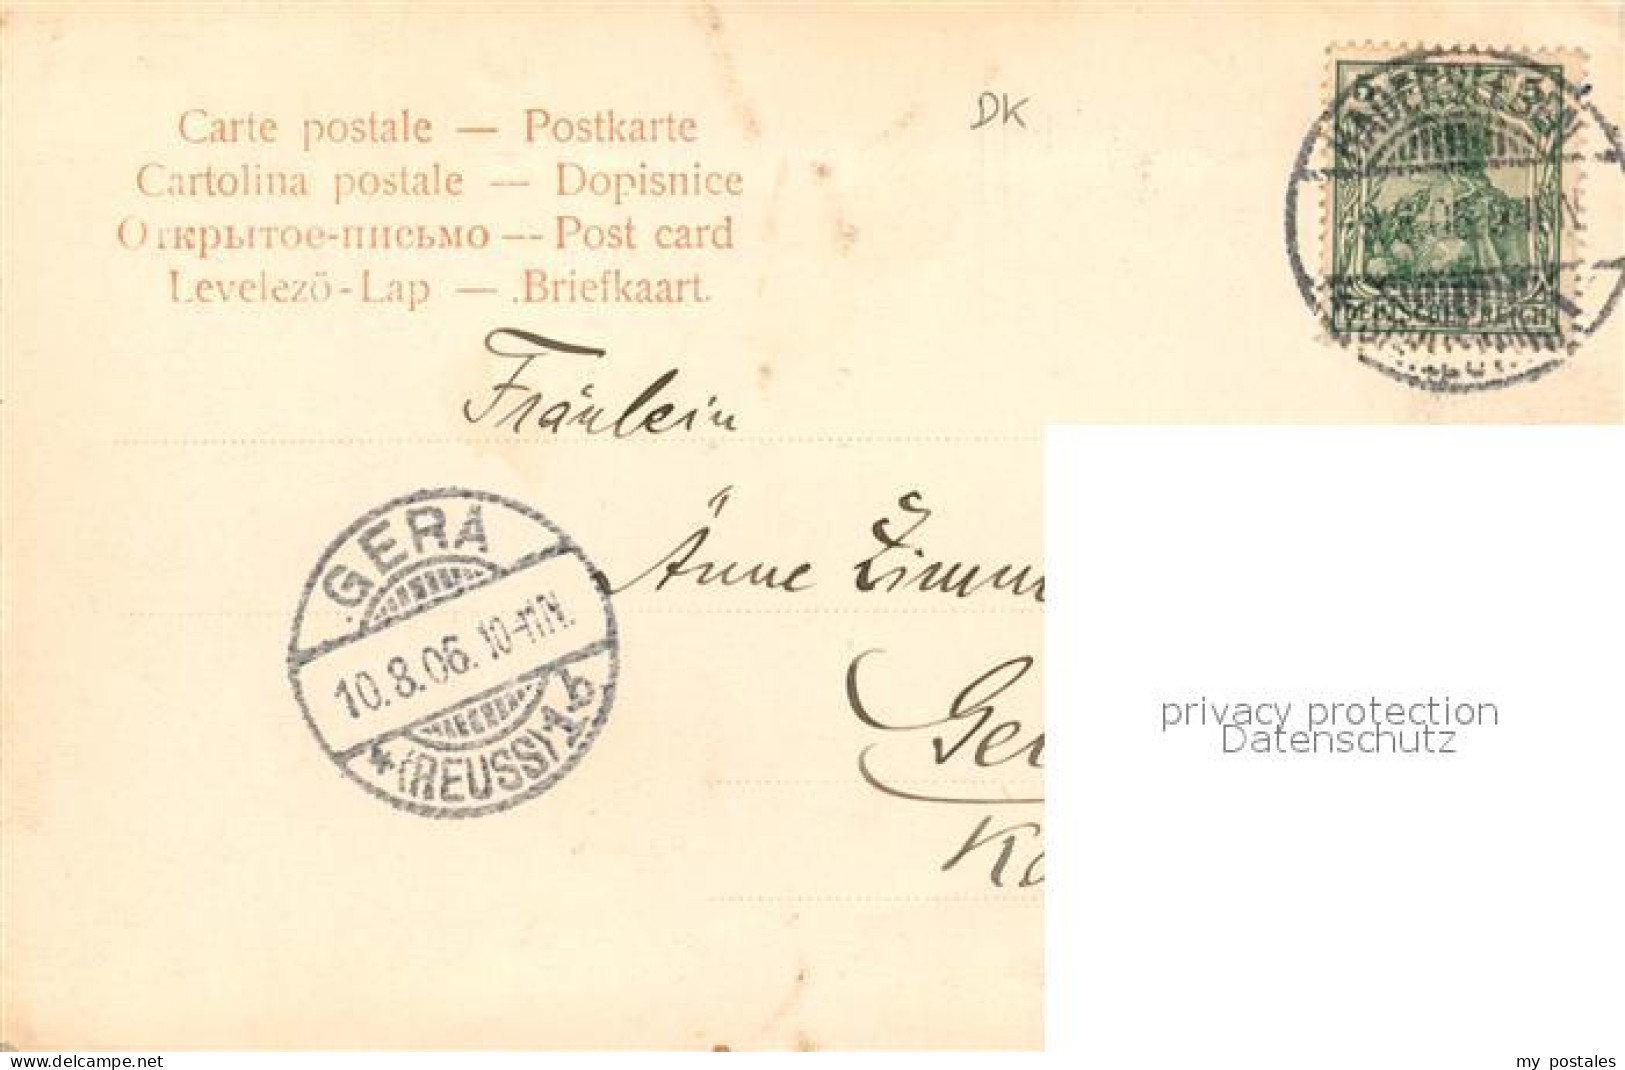 Carte postale — Postkarte
Cartolina postale — Dopisnice
Открытое-письмо — Post card
Levelező-Lap — Briefkaart.
DK
5 5
HADERSLEBEN
DEUTSCHES REICH
Fräulein
Änne Zimm
GERA
10.8.06. 10-11N.
(REUSS) 1b
privacy protection
Datenschutz
www.delcampe.net
my_postales